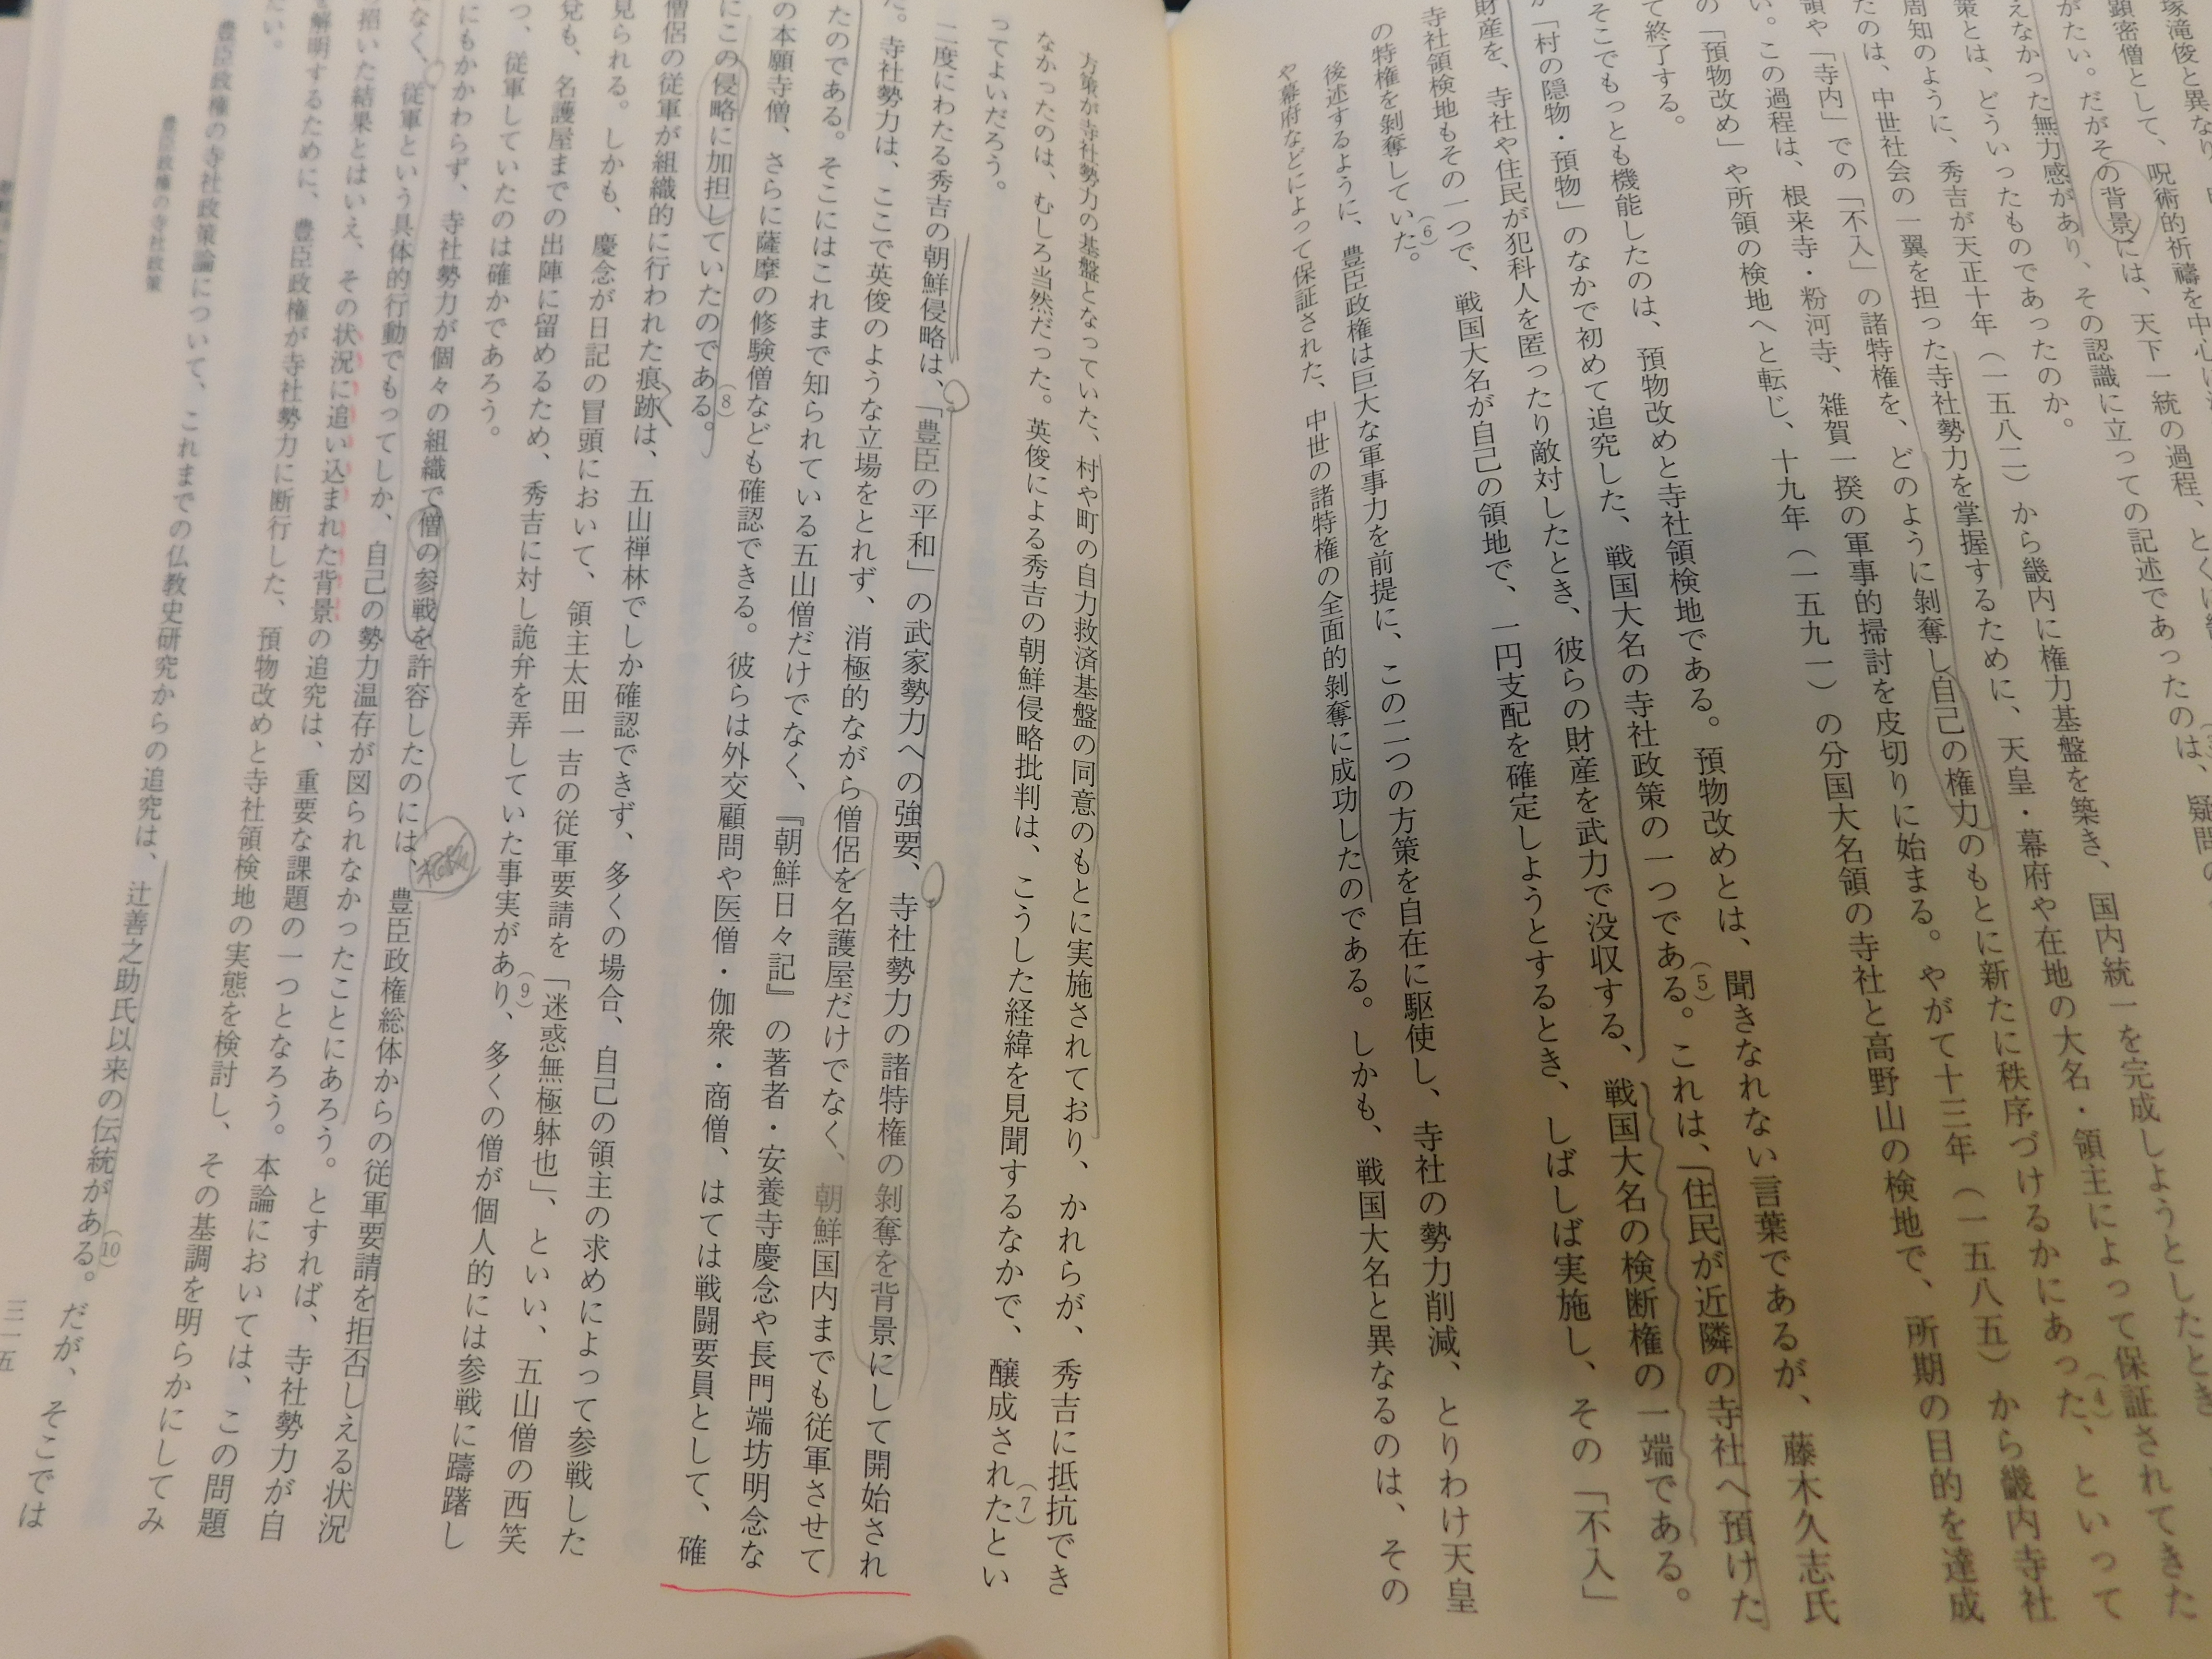 塚滝俊と異なり
顕密僧として、呪術的祈禱を中心に
がたい。だがその背景には、天下一統の過程、とくに
えなかった無力感があり、その認識に立っての記述であったのは、疑問の
策とは、どういったものであったのか。
周知のように、秀吉が天正十年（一五八二）から畿内に権力基盤を築き、国内統一を完成しようとしたとき
たのは、中世社会の一翼を担った寺社勢力を掌握するために、天皇・幕府や在地の大名・領主によって保証されてきた
「寺内」での「不入」の諸特権を、どのように剝奪し自己の権力のもとに新たに秩序づけるかにあった、といって(4)
い。この過程は、根来寺・粉河寺、雑賀一揆の軍事的掃討を皮切りに始まる。やがて十三年（一五八五）から畿内寺社
領や
の「預物改め」や所領の検地へと転じ、十九年（一五九一）の分国大名領の寺社と高野山の検地で、所期の目的を達成
て終了する。
そこでもっとも機能したのは、預物改めと寺社領検地である。預物改めとは、聞きなれない言葉であるが、藤木久志氏
「村の隠物・預物」のなかで初めて追究した、戦国大名の寺社政策の一つである。(5)これは、「住民が近隣の寺社へ預けた
財産を、寺社や住民が犯科人を匿ったり敵対したとき、彼らの財産を武力で没収する、戦国大名の検断権の一端である。
寺社領検地もその一つで、戦国大名が自己の領地で、一円支配を確定しようとするとき、しばしば実施し、その「不入」
の特権を剝奪していた。(6)
後述するように、豊臣政権は巨大な軍事力を前提に、この二つの方策を自在に駆使し、寺社の勢力削減、とりわけ天皇
や幕府などによって保証された、中世の諸特権の全面的剝奪に成功したのである。しかも、戦国大名と異なるのは、その
方策が寺社勢力の基盤となっていた、村や町の自力救済基盤の同意のもとに実施されており、かれらが、秀吉に抵抗でき
なかったのは、むしろ当然だった。英俊による秀吉の朝鮮侵略批判は、こうした経緯を見聞するなかで、醸成されたとい(7)
ってよいだろう。
二度にわたる秀吉の朝鮮侵略は、「豊臣の平和」の武家勢力への強要、寺社勢力の諸特権の剝奪を背景にして開始され
た。寺社勢力は、ここで英俊のような立場をとれず、消極的ながら僧侶を名護屋だけでなく、朝鮮国内までも従軍させて
たのである。そこにはこれまで知られている五山僧だけでなく、『朝鮮日々記』の著者・安養寺慶念や長門端坊明念な
の本願寺僧、さらに薩摩の修験僧なども確認できる。彼らは外交顧問や医僧・伽衆・商僧、はては戦闘要員として、確
にこの侵略に加担していたのである。(8)
僧侶の従軍が組織的に行われた痕跡は、五山禅林でしか確認できず、多くの場合、自己の領主の求めによって参戦した
見られる。しかも、慶念が日記の冒頭において、領主太田一吉の従軍要請を「迷惑無極躰也」、といい、五山僧の西笑
兌も、名護屋までの出陣に留めるため、秀吉に対し詭弁を弄していた事実があり、(9)多くの僧が個人的には参戦に躊躇し
つ、従軍していたのは確かであろう。
にもかかわらず、寺社勢力が個々の組織で僧の参戦を許容したのには、豊臣政権総体からの従軍要請を拒否しえる状況
なく、従軍という具体的行動でもってしか、自己の勢力温存が図られなかったことにあろう。とすれば、寺社勢力が自
招いた結果とはいえ、その状況に追い込まれた背景の追究は、重要な課題の一つとなろう。本論においては、この問題
を解明するために、豊臣政権が寺社勢力に断行した、預物改めと寺社領検地の実態を検討し、その基調を明らかにしてみ
たい。
豊臣政権の寺社政策論について、これまでの仏教史研究からの追究は、辻善之助氏以来の伝統がある。(10)だが、そこでは
豊臣政権の寺社政策
三一五